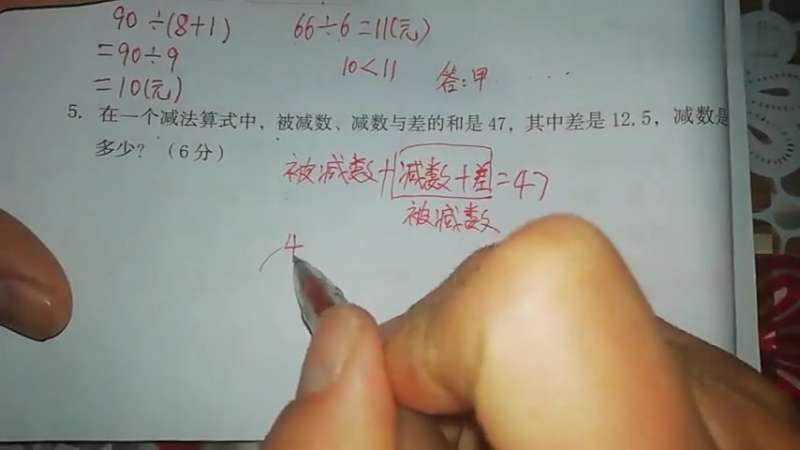 90÷(8+1) 66÷6=11(元)
=90÷9 10<11 答:甲
=10(元)
5. 在一个减法算式中，被减数、减数与差的和是47，其中差是12.5，减数是
多少？（6分）
被减数+减数+差=47
被减数
(4